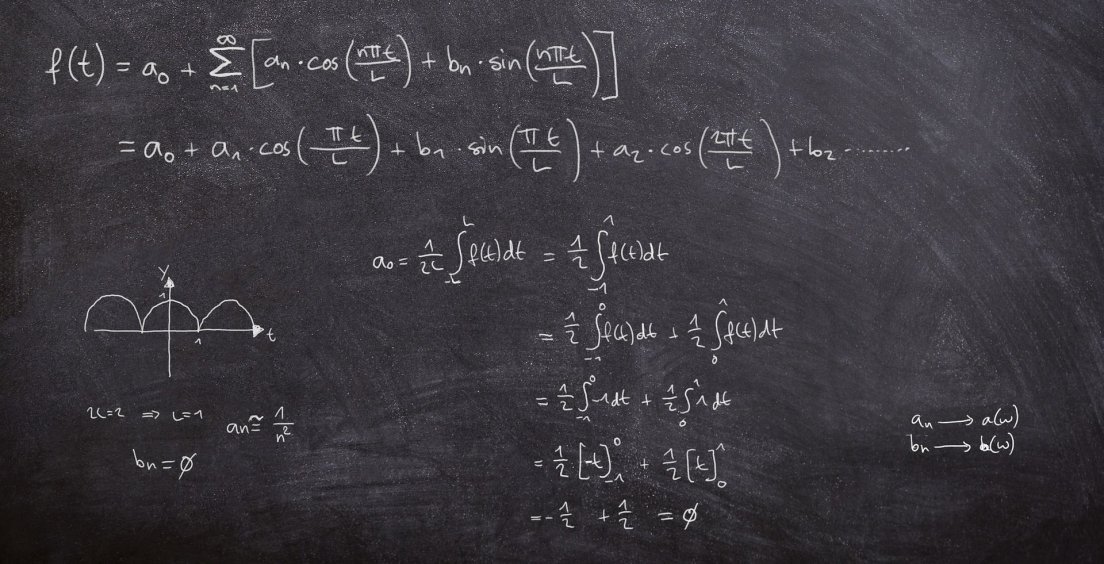 f(t) = a₀ + ∑_{n=1}^{∞} [aₙ · cos(nπt/L) + bₙ · sin(nπt/L)]
= a₀ + a₁ · cos(πt/L) + b₁ · sin(πt/L) + a₂ · cos(2πt/L) + b₂ ········
a₀ = 1/2L ∫_{-L}^{L} f(t)dt = 1/2 ∫_{-1}^{1} f(t)dt
= 1/2 ∫_{-1}^{0} f(t)dt + 1/2 ∫_{0}^{1} f(t)dt
= 1/2 ∫_{-1}^{0} -1dt + 1/2 ∫_{0}^{1} 1dt
= 1/2 [-t]_{-1}^{0} + 1/2 [t]_{0}^{1}
= -1/2 + 1/2 = ∅
y
1
1
t
2L=2 ⇒ L=1
aₙ ≅ 1/n²
bₙ = ∅
aₙ → a(ω)
bₙ → b(ω)